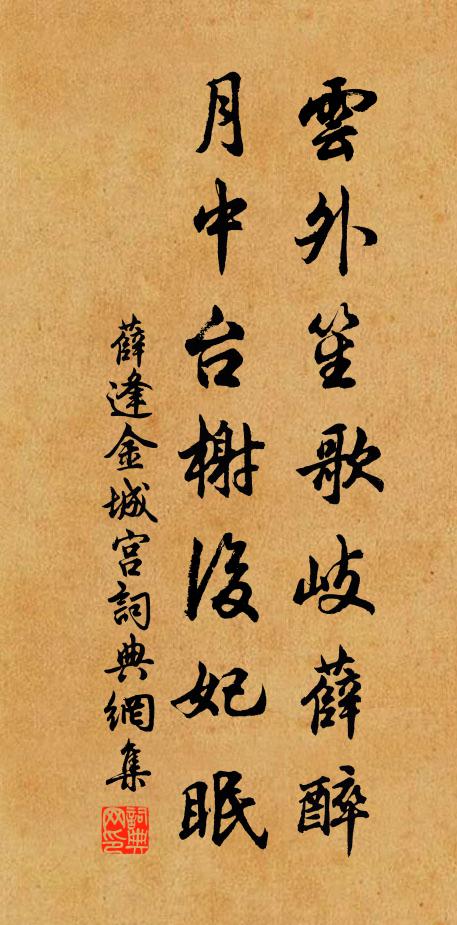 雲外笙歌岐薛醉
月中台榭後妃眠
薛逢金城宮詞典網集
詞典網印